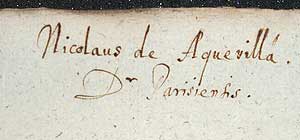 Nicolaus de Aquevilla.
Dr Parisiensis.